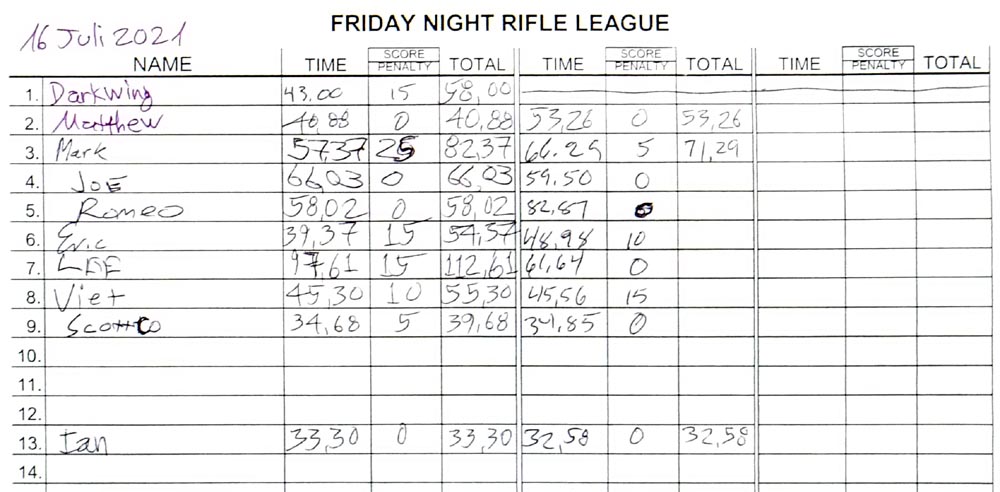 FRIDAY NIGHT RIFLE LEAGUE
16 Juli 2021
NAME TIME SCORE PENALTY TOTAL TIME SCORE PENALTY TOTAL TIME SCORE PENALTY TOTAL
1. Darkwing 43.00 15 58,00
2. Matthew 40,88 0 40,88 53,26 0 53,26
3. Mark 57,37 25 82,37 66.29 5 71,29
4. JOE 66,03 0 66,03 59.50 0
5. Romeo 58,02 0 58,02 82,87
6. Eric 39,37 15 54,37 48,98 10
7. LEE 97,61 15 112,61 61,64 0
8. Viet 45,30 10 55,30 45,56 15
9. 34,68 5 39,68 34,85 0
10.
11.
12.
13. Ian 33,30 0 33,30 32,58 0 32,58
14.